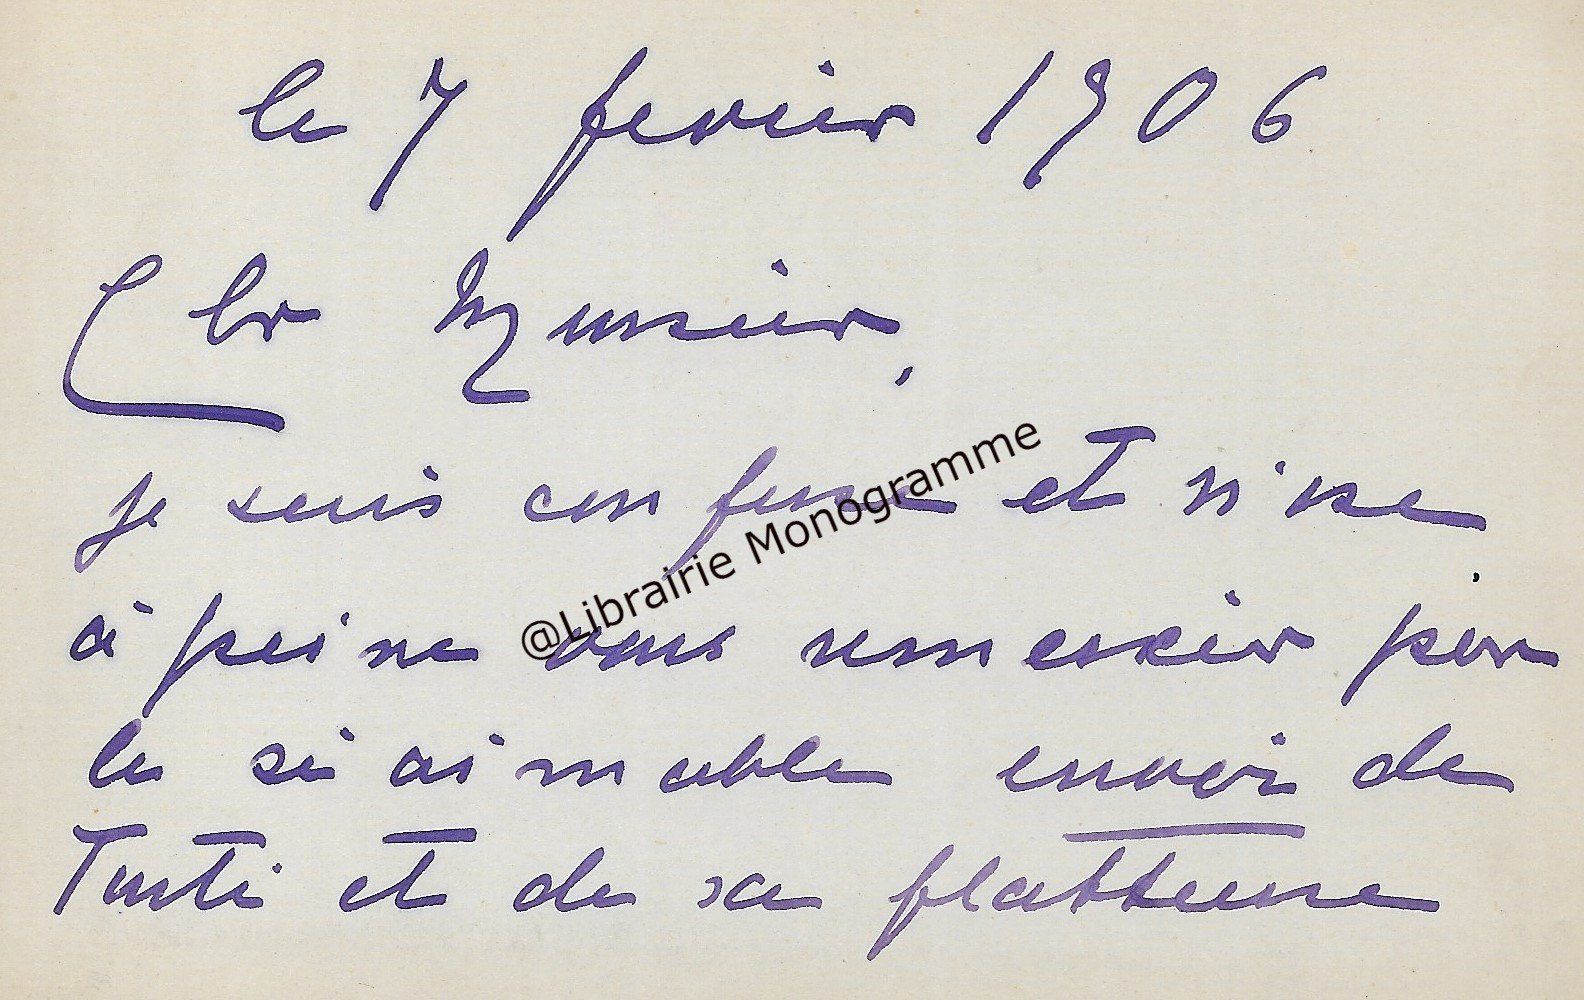 le 7 fevrier 1906
Cher Monsieur,
je suis confuse et n'ose
à peine vous remercier pour
le si aimable envoi de
Tosti et de sa flatteuse
@Librairie Monogramme